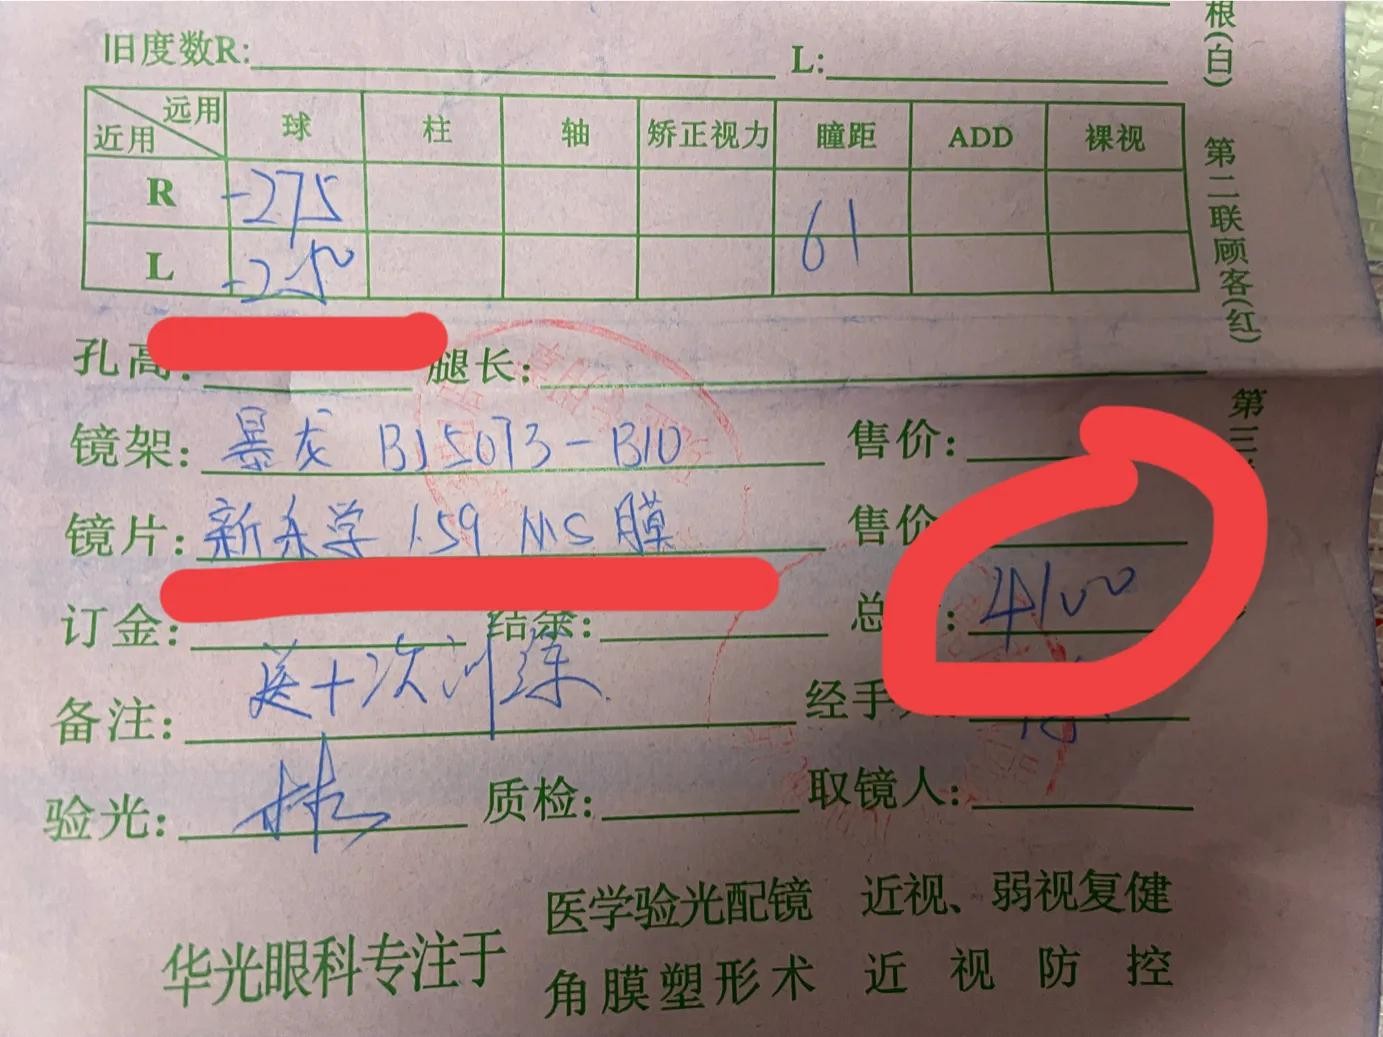 旧度数R: L:
远用 近用 球 柱 轴 矫正视力 瞳距 ADD 裸视
R -275 61
L -2.50
孔高: 腿长:
镜架: 暴龙 BJ5073-B10 售价:
镜片: 新乐学 1.59 MS膜 售价
订金: 结余: 总 : 4100
备注: 送十次训练 经手
验光: 质检: 取镜人:
华光眼科专注于
医学验光配镜 近视、弱视复健
角膜塑形术 近视防控
根(白)
第二联顾客(红)
第三